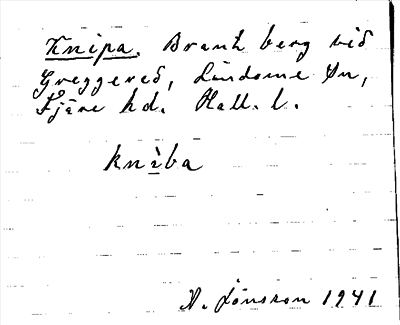 Knipa. Brant berg vid
Greggered, Lindome Sn,
Fjäre hd. Hall. l.
knìba
A. Jönsson 1941